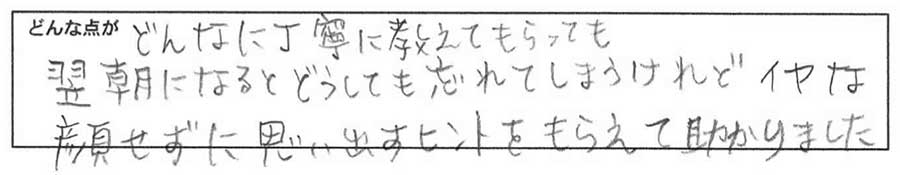 どんな点が どんなに丁寧に教えてもらっても
翌朝になるとどうしても忘れてしまうけれど イヤな
顔せずに思い出すヒントをもらえて助かりました